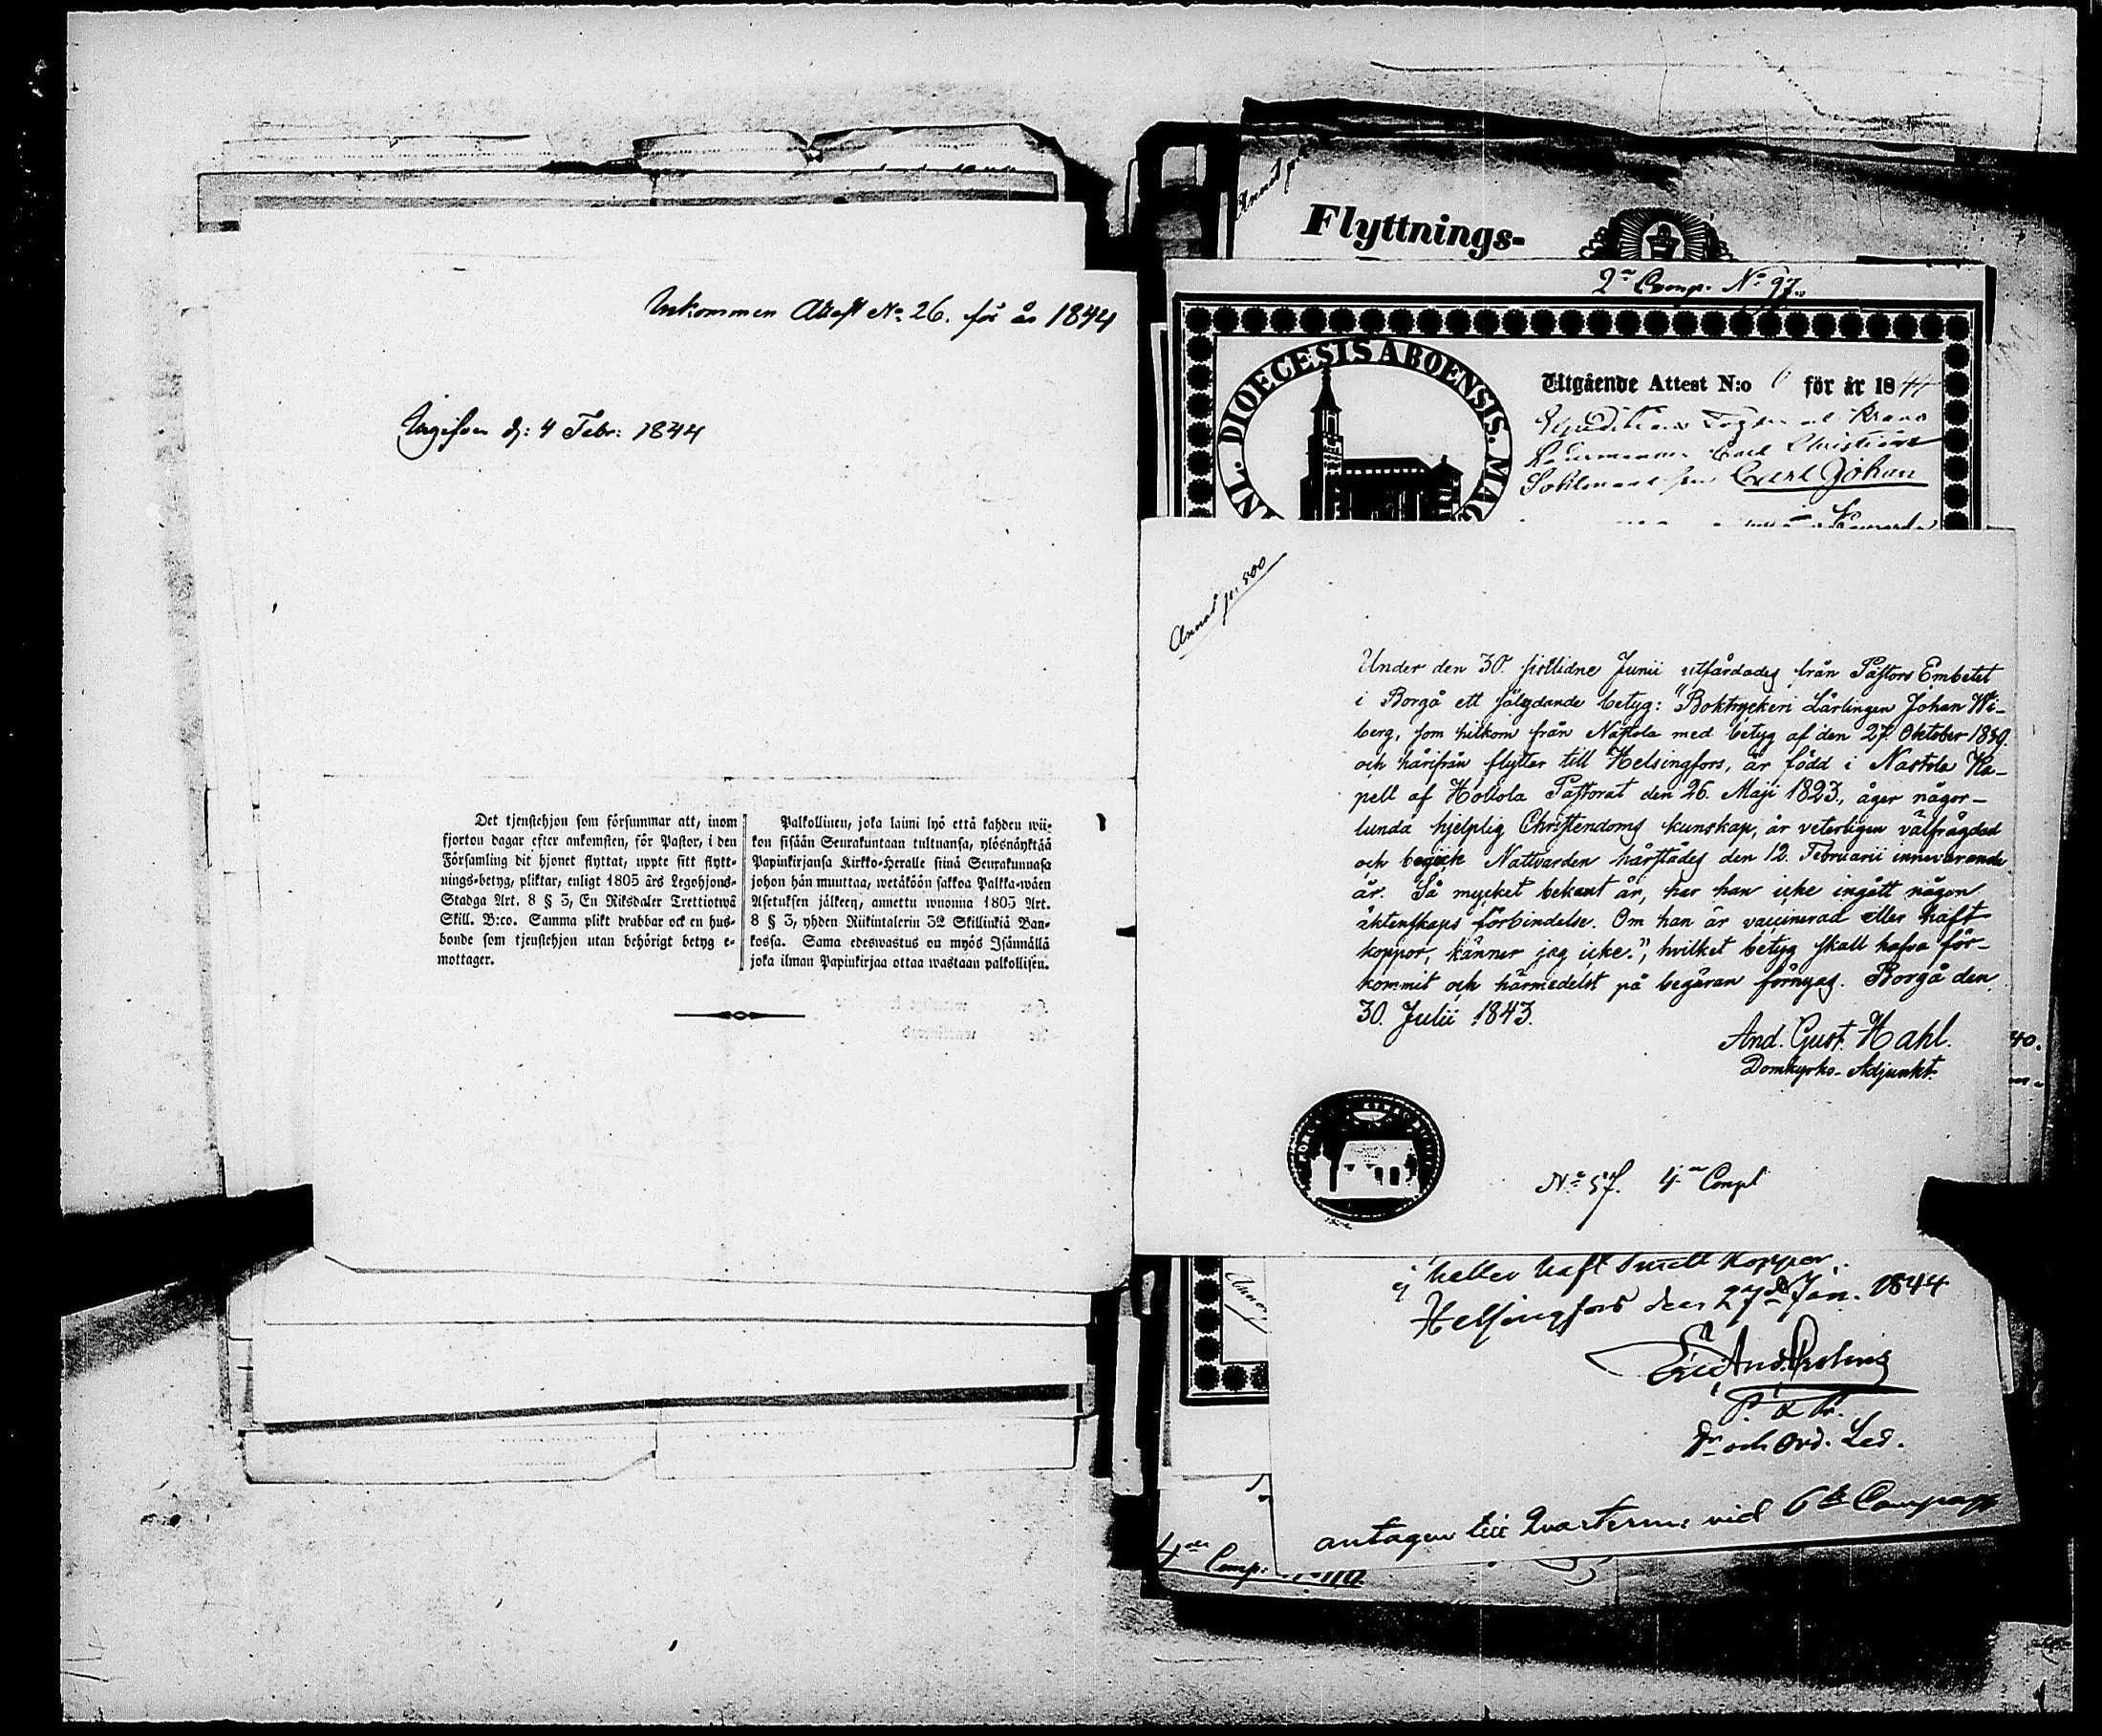 Inkommen Attest No: 26. för år 1844
Ingifven d: 4 Febr: 1844
Det tjenstehjon som försummar att, inom
fjorton dagar efter ankomsten, för Pastor, i den
Församling dit hjonet flyttat, uppte sitt flytt-
nings-betyg, pliktar, enligt 1805 års Legohjons-
Stadga Art. 8 § 3, En Riksdaler Trettiotwå
Skill. B:co. Samma plikt drabbar ock en hus-
bonde som tjenstehjon utan behörigt betyg e-
mottager.
Palkollinen, joka laimi lyö että kahden wii-
kon sisään Seurakuntaan tultuansa, ylösnäyktää
Papinkirjansa Kirkko-Heralle siinä Seurakunnasa
johon hän muuttaa, wetäköön sakkoa Palkka-wäen
Asetuksen jälkeen, annettu wuonna 1805 Art.
8 § 3, yhden Riikintalerin 32 Skillinkiä Ban-
kossa. Sama edeswastus on myös Isännällä
joka ilman Papinkirjaa ottaa wastaan palkollisen.
Flyttnings-
2a Comp. No 97.
DIOECESIS ABOENSIS. MAG
Utgående Attest N:o för år 1844
Carl Christian
Carl Johan
Annot p. 500
Under den 30 sistlidne Junii utfärdades från Pastors Embetet
i Borgå ett följdande betyg: "Boktryckeri Lärlingen Johan Wi-
berg, som hitkom från Nastola med betyg af den 27. Oktober 1839.
och härifrån flytter till Helsingfors, är född i Nastola Ka-
pell af Hollola Pastorat den 26. Maji 1823, äger någor-
lunda hjelplig Christendoms kunskap, är veterligen välfrägdad
och begick Nattvarden härstädes den 12. Februarii innevarande
år. Så mycket bekant är, har han icke ingått någon
äktenskaps förbindelse. Om han är vaccinerad eller haft
koppor, känner jag icke.", hvilket betyg skall hafva för-
kommit och härmedelst på begäran förnyas. Borgå den
30. Julii 1843.
And. Gust. Hahl.
Domkyrko-Adjunkt.
No 57. 4de Compt
40.
ej heller haft Smitt koppor.
Helsingfors den 27de Jan. 1844
och Ord. Led.
antagen till Quarterm: vid 6te Compag
4de Comp. No 110.